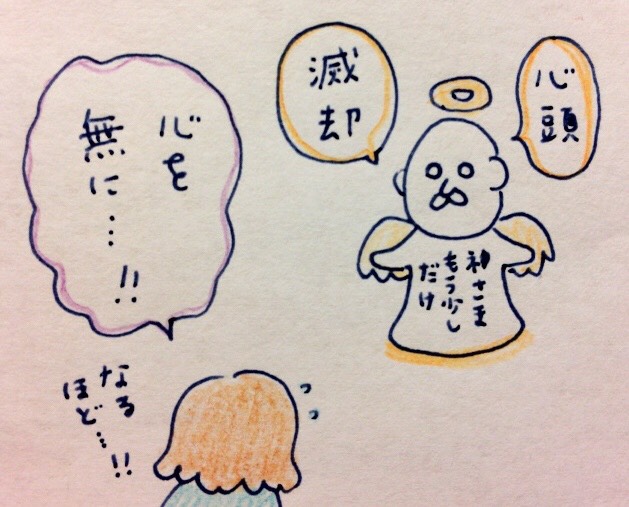 心頭
滅却
神さま
もう少し
だけ
心を
無に…!!
なる
ほど…!!